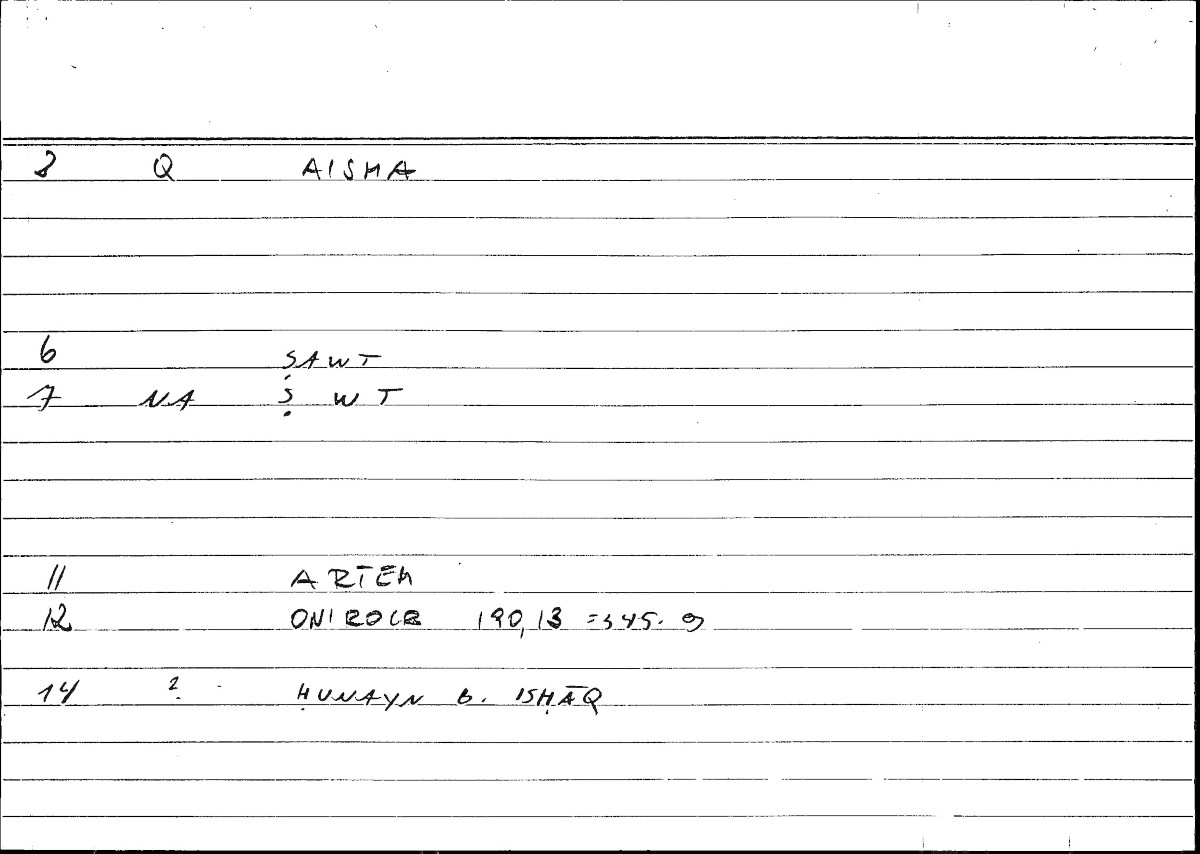 8 Q AISHA
6 ṢAWT
7 NA Ṣ WT
11 ARTEM
12 ONIROCR 190,13 = 345. 9
14 ? ḤUNAYN b. ISḤĀQ